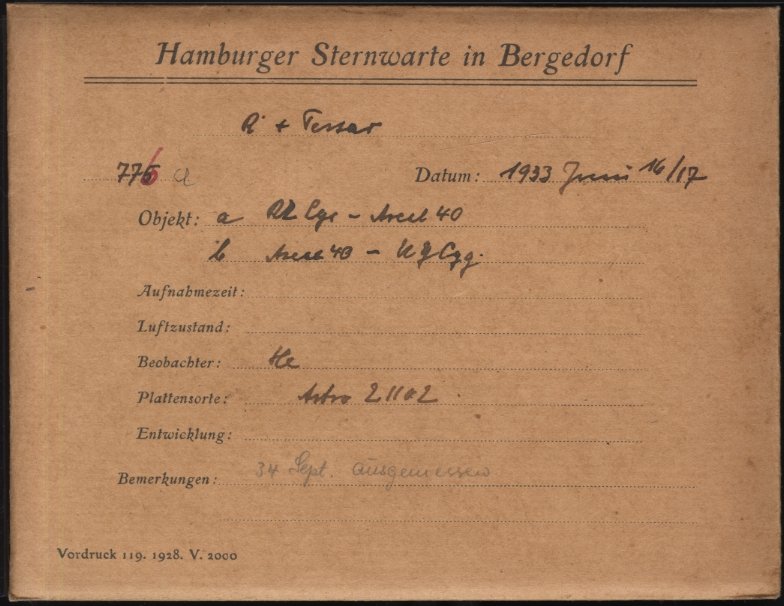 Hamburger Sternwarte in Bergedorf
R + Tessar
776 a Datum: 1933 Juni 16/17
Objekt: a Cyg - Areal 40
b Areal 40 - Cyg.
Aufnahmezeit:
Luftzustand:
Beobachter: He
Plattensorte: Astro 21102
Entwicklung:
Bemerkungen: 34 Sept. ausgemessen
Vordruck 119. 1928. V. 2000